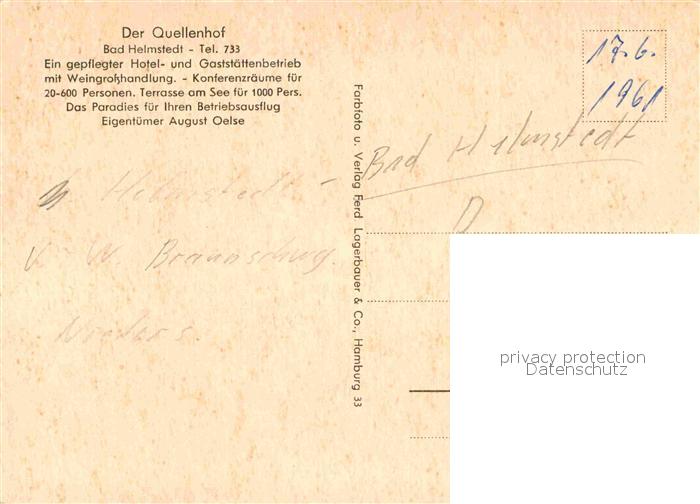 Der Quellenhof
Bad Helmstedt - Tel. 733
Ein gepflegter Hotel- und Gaststättenbetrieb
mit Weingroßhandlung. - Konferenzräume für
20-600 Personen. Terrasse am See für 1000 Pers.
Das Paradies für Ihren Betriebsausflug
Eigentümer August Oelse
Farbfoto u. Verlag Ferd. Lagerbauer & Co., Hamburg 33
17.6.
1961
Bad Helmstedt
D
Helmstedt -
W. Braunschwg.
Nieders.
privacy protection
Datenschutz